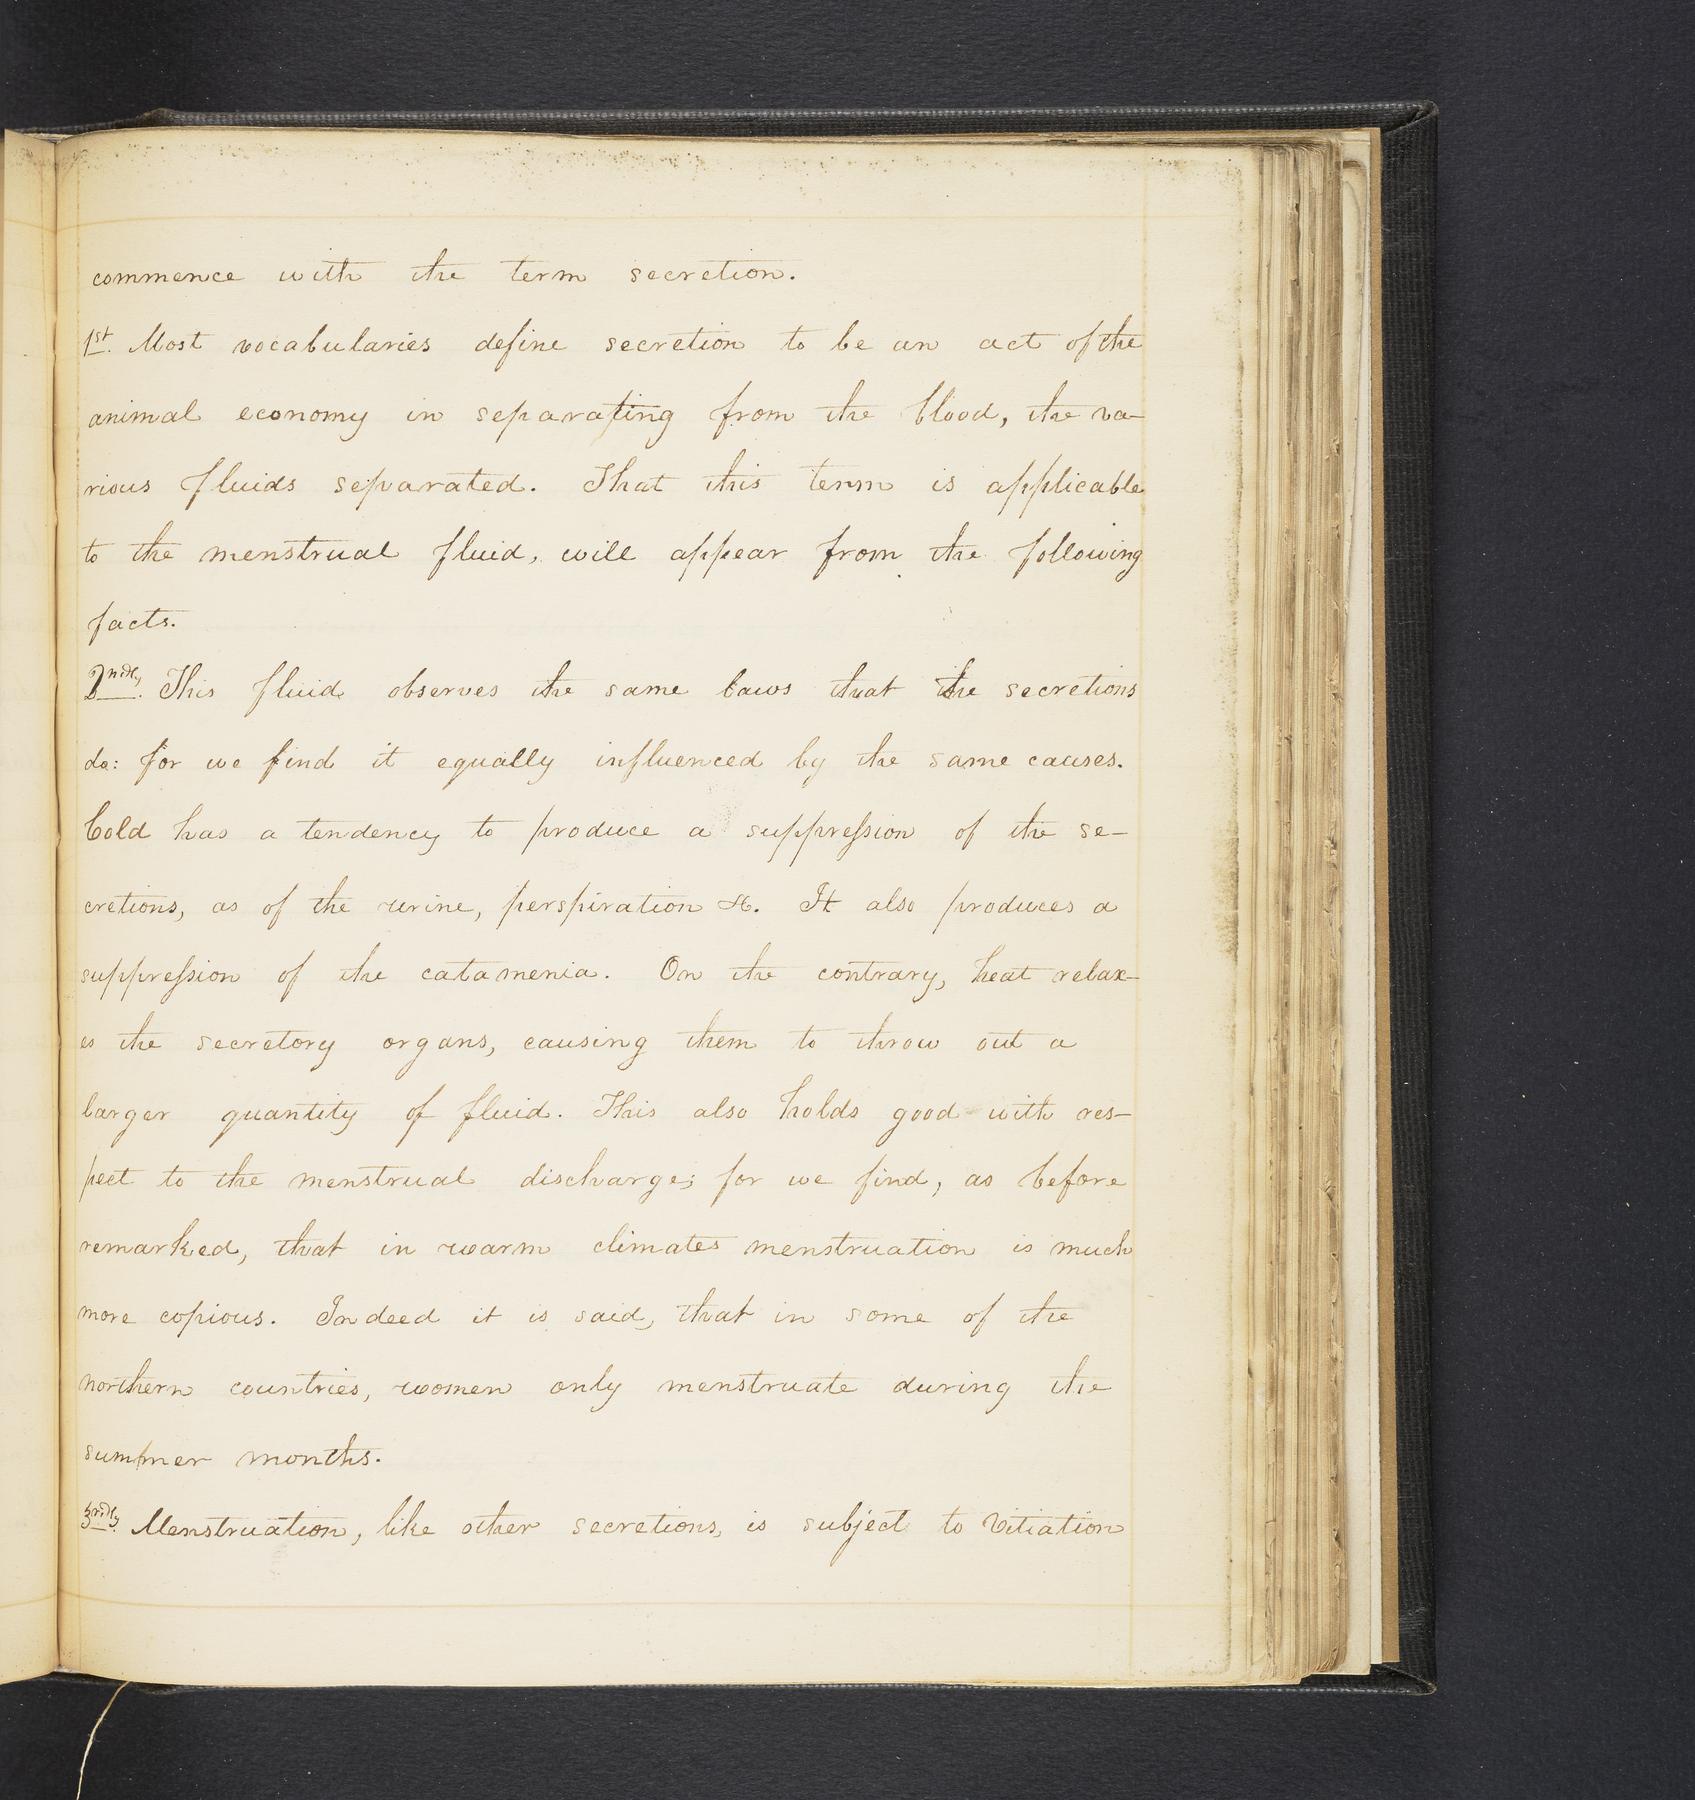 commence with the term secretion.
1st. Most vocabularies define secretion to be an act of the
animal economy in separating from the blood, the va-
rious fluids separated. That this term is applicable
to the menstrual fluid, will appear from the following
facts.
2ndly. This fluid observes the same laws that the secretions
do: for we find it equally influenced by the same causes.
Cold has a tendency to produce a suppression of the se-
cretions, as of the urine, perspiration &c. It also produces a
suppression of the catamenia. On the contrary, heat relax-
es the secretory organs, causing them to throw out a
larger quantity of fluid. This also holds good with res-
pect to the menstrual discharge; for we find, as before
remarked, that in warm climates menstruation is much
more copious. Indeed it is said, that in some of the
northern countries, women only menstruate during the
summer months.
3rdly. Menstruation, like other secretions, is subject to vitiation